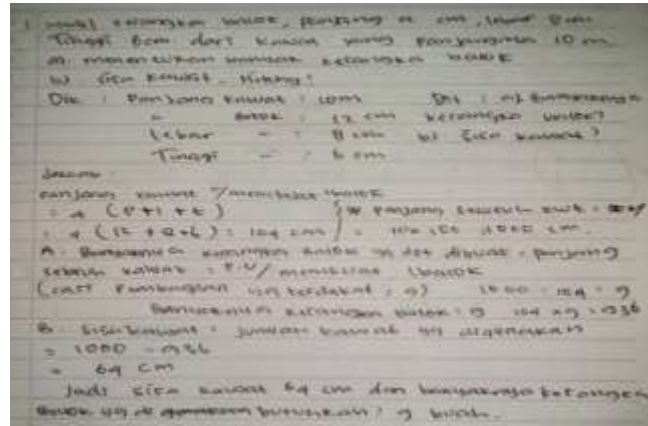 1 Soal kerangka balok, panjang 12 cm, lebar 8 cm
Tinggi 6 cm dari kawat yang panjangnya 10 m.
a. menentukan banyak kerangka balok
b) sisa kawat. Hitung!
Dik : Panjang kawat : 10 m Dit : a)
- balok : 12 cm kerangka balok?
lebar - : 8 cm b) sisa kawat?
Tinggi - : 6 cm
Jawab :
panjang kawat / membuat 1 balok
= 4 (P + l + t)
= 4 (12 + 8 + 6) = 104 cm
A. Banyaknya kerangka balok yg dpt dibuat = panjang
seluruh kawat : / membuat 1 balok
(cari Pembagian yg terdekat : 9) 1000 : 104 = 9
Banyaknya kerangka balok : 9 104 x 9 = 936
B. Sisa kawat = jumlah kawat yg digunakan
= 1000 - 936
= 64 cm
Jadi sisa kawat 64 cm dan banyaknya kerangka
Balok yg di butuhkan : 9 buah.